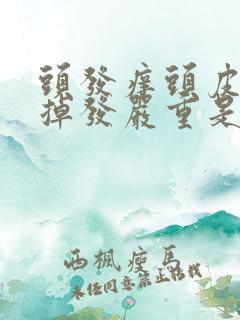 頭發癢頭皮
掉發嚴重是
西楓瘦馬
未經同意禁止轉載